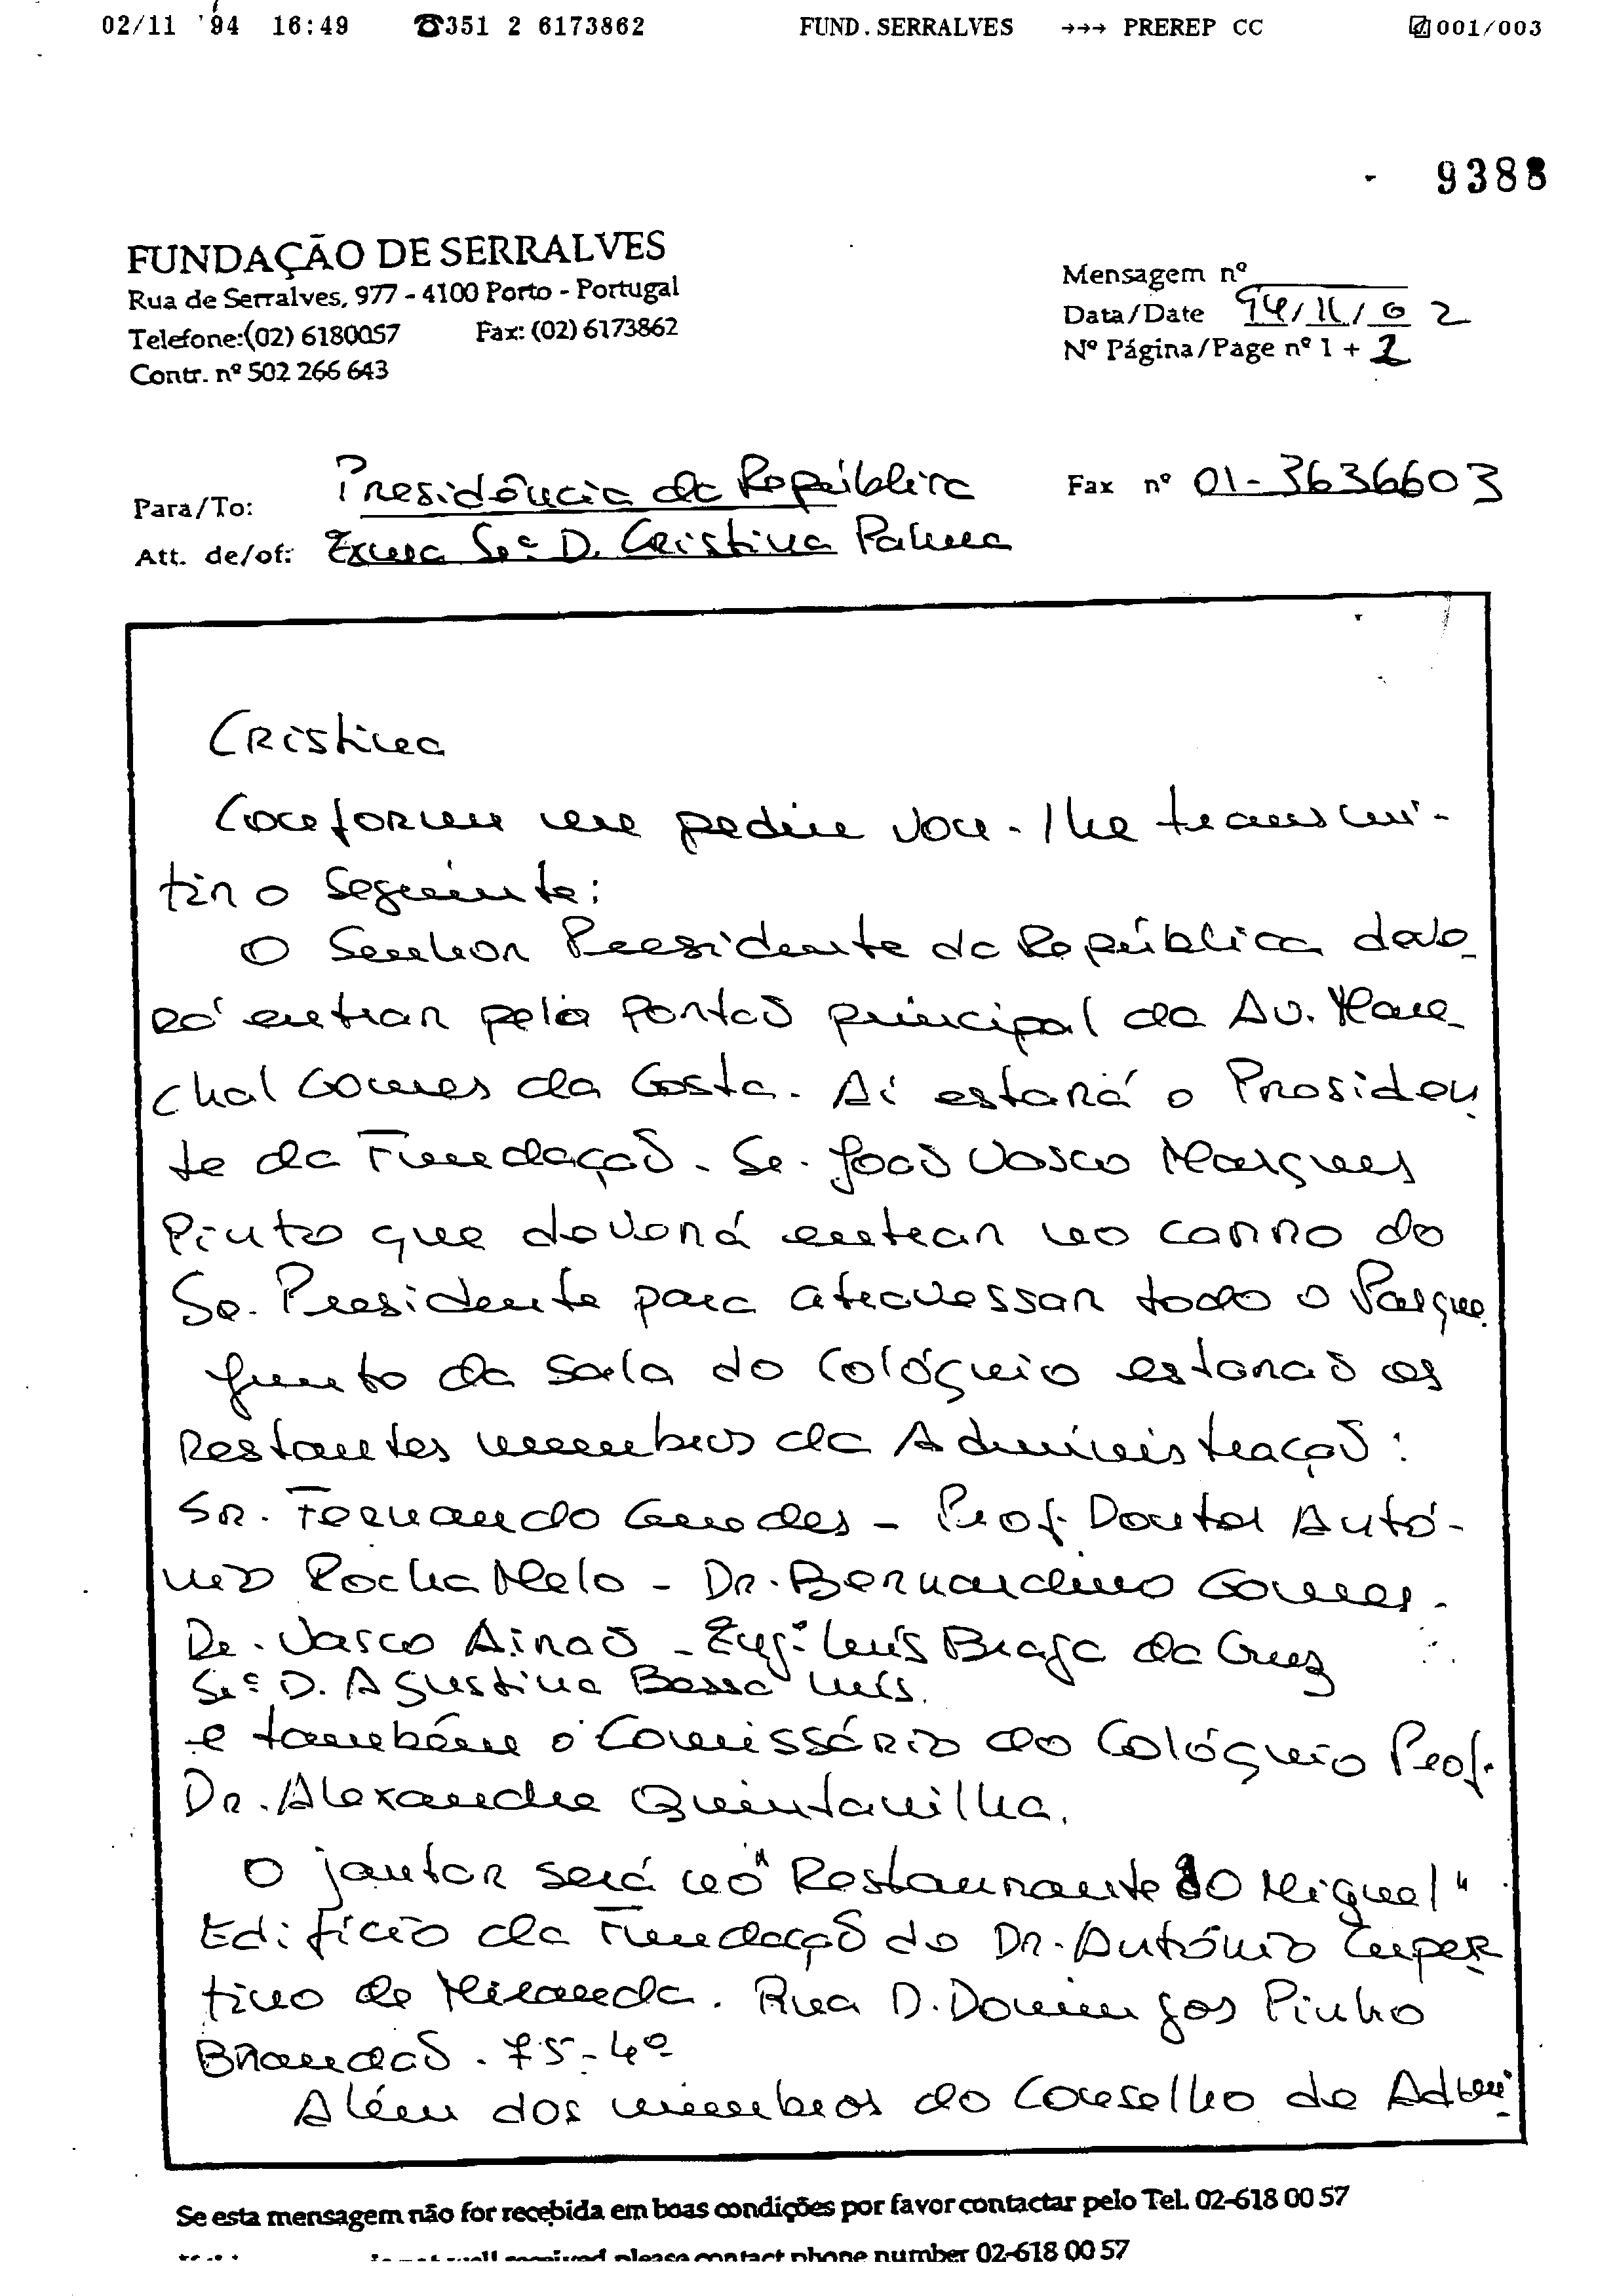 02/11 '94 16:49 ☎351 2 6173862 FUND.SERRALVES →→→ PREREP CC 001/003
9388
FUNDAÇÃO DE SERRALVES
Rua de Serralves, 977 - 4100 Porto - Portugal
Telefone:(02) 6180057 Fax: (02) 6173862
Contr. nº 502 266 643
Mensagem nº
Data/Date 94/11/02
Nº Página/Page nº 1 + 2
Para/To: Presidência da República Fax nº 01-3636603
Att. de/of: Exma Srª D. Cristina Palma
Cristina
Conforme me pediu vou-lhe transmi-
tir o seguinte:
O Senhor Presidente da República deve-
rá entrar pelo Portão principal da Av. Mare-
chal Gomes da Costa. Aí estará o Presiden-
te da Fundação - Sr. João Vasco Marques
Pinto que deverá entrar no carro do
Sr. Presidente para atravessar todo o Parque.
Junto da sala do Colóquio estarão os
restantes membros da Administração:
Sr. Fernando Guedes - Prof. Doutor Antó-
nio Rocha Melo - Dr. Bernardino Gomes -
Dr. Vasco Airão - Engº Luís Braga da Cruz
Srª D. Agustina Bessa Luís.
e também o Comissário do Colóquio Prof.
Dr. Alexandre Quintanilha.
O jantar será no "Restaurante do Miguel"
Edifício da Fundação do Dr. António Cuper-
tino de Miranda. Rua D. Domingos Pinho
Brandão. 75-4º
Além dos membros do Conselho de Admi-
Se esta mensagem não for recebida em boas condições por favor contactar pelo Tel. 02-618 00 57
well received please contact phone number 02-618 00 57